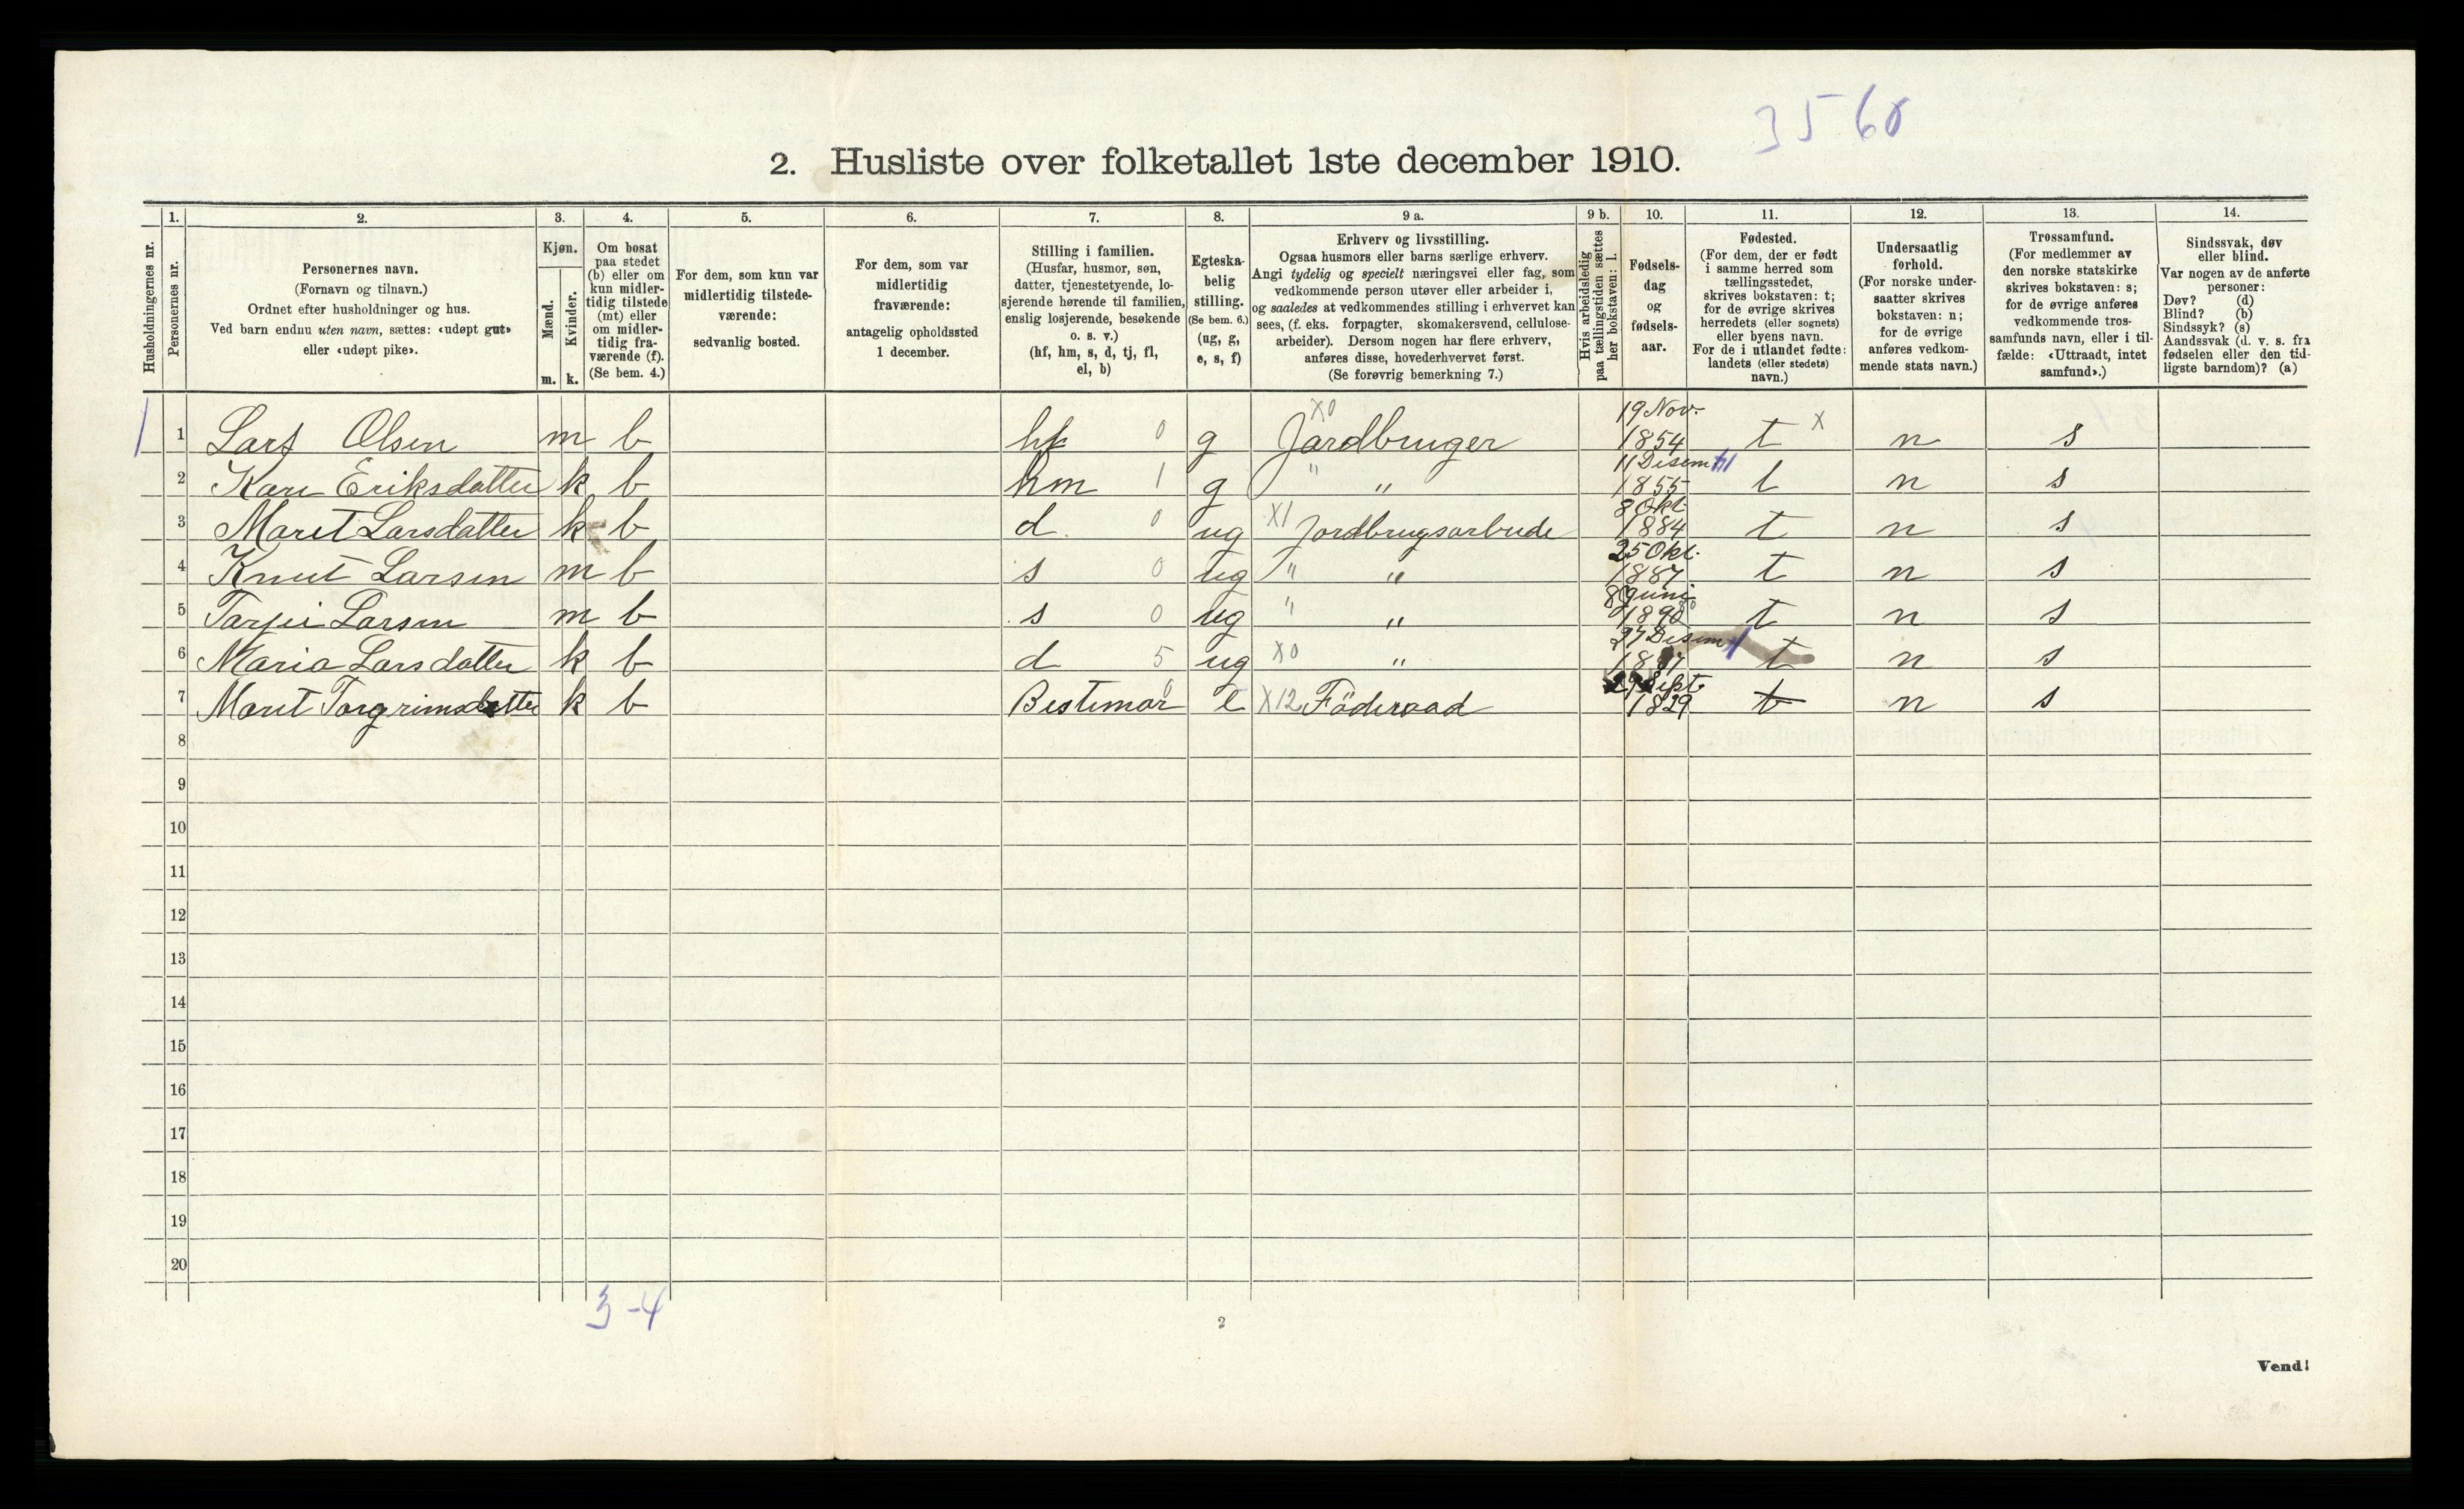 3560
2. Husliste over folketallet 1ste december 1910.
Husholdningernes nr.
1. Personernes nr.
2. Personernes navn.
(Fornavn og tilnavn.)
Ordnet efter husholdninger og hus.
Ved barn endnu uten navn, sættes: «udøpt gut»
eller «udøpt pike».
3. Kjøn.
Mænd. m.
Kvinder. k.
4. Om bosat
paa stedet
(b) eller om
kun midler-
tidig tilstede
(mt) eller
om midler-
tidig fra-
værende (f).
(Se bem. 4.)
5. For dem, som kun var
midlertidig tilstede-
værende:
sedvanlig bosted.
6. For dem, som var
midlertidig
fraværende:
antagelig opholdssted
1 december.
7. Stilling i familien.
(Husfar, husmor, søn,
datter, tjenestetyende, lo-
sjerende hørende til familien,
enslig losjerende, besøkende
o. s. v.)
(hf, hm, s, d, tj, fl,
el, b)
8. Egteska-
belig
stilling.
(Se bem. 6.)
(ug, g,
e, s, f)
9 a. Erhverv og livsstilling.
Ogsaa husmors eller barns særlige erhverv.
Angi tydelig og specielt næringsvei eller fag, som
vedkommende person utøver eller arbeider i,
og saaledes at vedkommendes stilling i erhvervet kan
sees, (f. eks. forpagter, skomakersvend, cellulose-
arbeider). Dersom nogen har flere erhverv,
anføres disse, hovederhvervet først.
(Se forøvrig bemerkning 7.)
9 b. Hvis arbeidsledig
paa tællingstiden sættes
her bokstaven: l.
10. Fødsels-
dag
og
fødsels-
aar.
11. Fødested.
(For dem, der er født
i samme herred som
tællingsstedet,
skrives bokstaven: t;
for de øvrige skrives
herredets (eller sognets)
eller byens navn.
For de i utlandet fødte:
landets (eller stedets)
navn.)
12. Undersaatlig
forhold.
(For norske under-
saatter skrives
bokstaven: n;
for de øvrige
anføres vedkom-
mende stats navn.)
13. Trossamfund.
(For medlemmer av
den norske statskirke
skrives bokstaven: s;
for de øvrige anføres
vedkommende tros-
samfunds navn, eller i til-
fælde: «Uttraadt, intet
samfund».)
14. Sindssvak, døv
eller blind.
Var nogen av de anførte
personer:
Døv? (d)
Blind? (b)
Sindssyk? (s)
Aandssvak (d. v. s. fra
fødselen eller den tid-
ligste barndom)? (a)
1 1 Lars Olsen m b hf 0 g X0 Jordbruger 19 Nov. 1854 t X n s
2 Kari Eriksdatter k b hm 1 g " " 11 Desem 1855 t n s
3 Marit Larsdatter k b d. 0 ug X1 Jordbrugsarbeide 8 Okt. 1884 t n s
4 Knut Larsen m b s 0 ug " " 25 Okt. 1887 t n s
5 Tarjei Larsen m b s 0 ug " " 8 Juni 1890 t n s
6 Maria Larsdatter k b d 5 ug X0 " 27 Desem t n s
7 Marit Torgrimsdatter k b Bestemor 0 e X12 Föderaad 29 Sept. 1829 t n s
8
9
10
11
12
13
14
15
16
17
18
19
20
3-4
2
Vend!